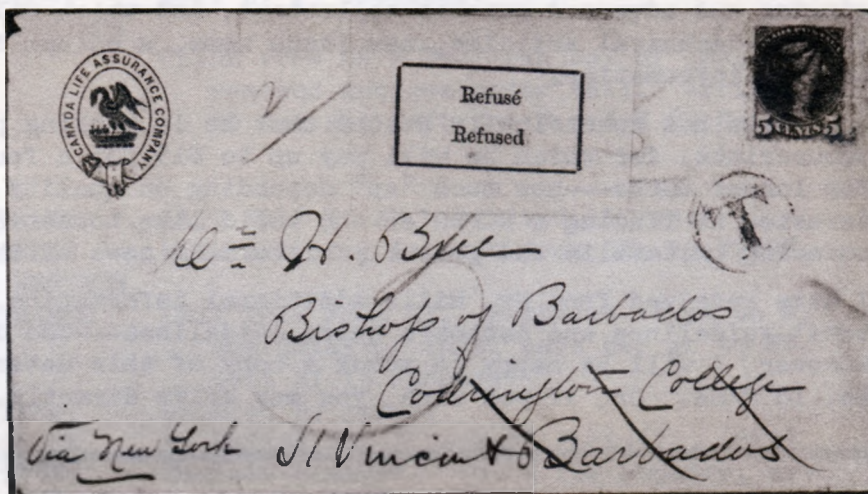 CANADA LIFE ASSURANCE COMPANY
Refusé
Refused
5 CENTS 5
T
H.
Bishop of Barbados
Codrington College
Via New York St Vincent Barbados